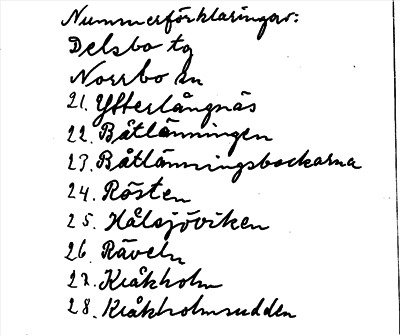 Nummerförklaringar:
Delsbo tg
Norrbo sn
21. Ytterlångnäs
22. Båtlänningen
23. Båtlänningsbackarna
24. Rösten
25. Hålsjöviken
26. Räveln
27. Kråkholm
28. Kråkholmsudden